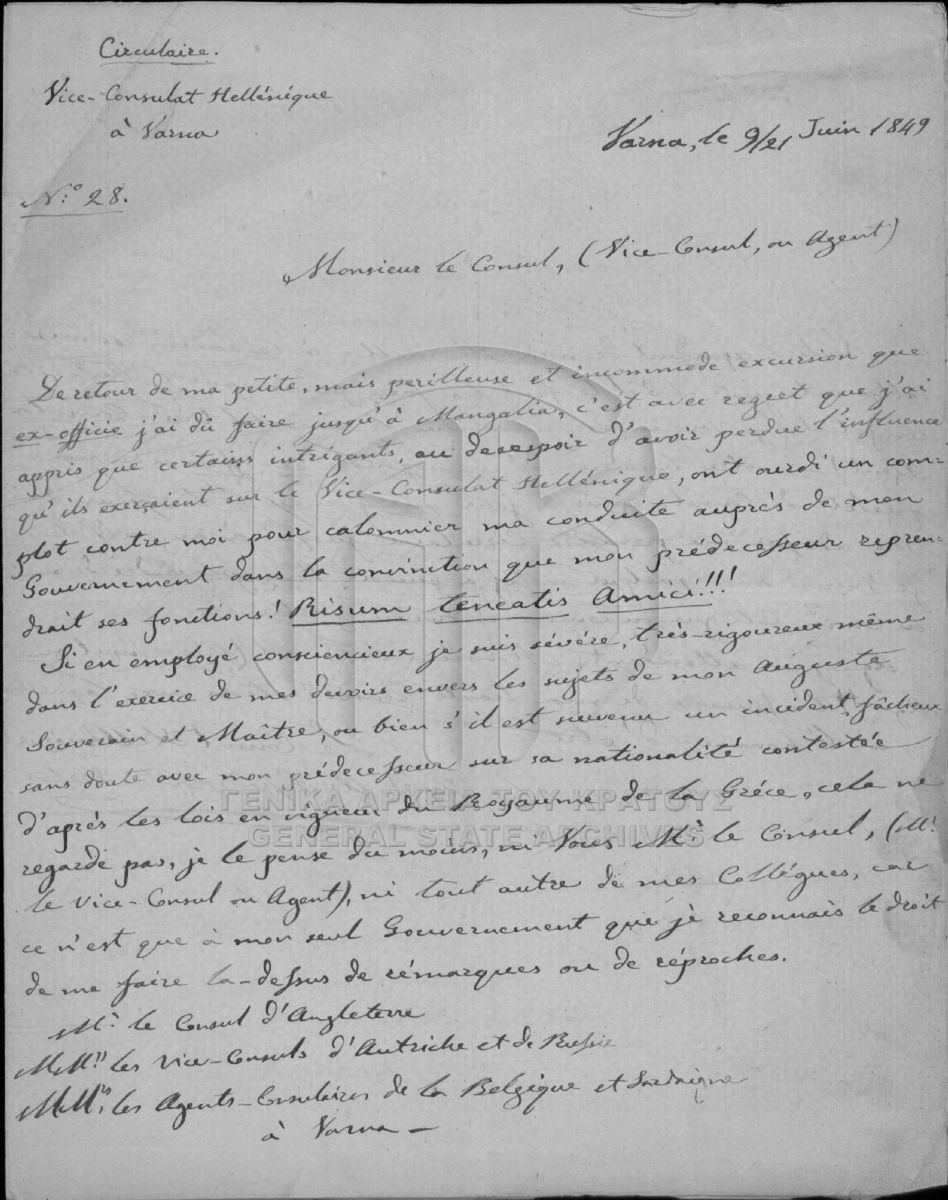 Circulaire.
Vice-Consulat Hellénique
à Varna
Varna, le 9/21 Juin 1849
N.º 28.
Monsieur le Consul, (Vice-Consul, ou Agent)
De retour de ma petite, mais perilleuse et incommode excursion que
ex-officie j'ai dû faire jusqu'à Mangalia, c'est avec regret que j'ai
appris que certains intrigants, au desespoir d'avoir perdue l'influence
qu'ils exerçaient sur le Vice-Consulat Hellénique, ont ourdi un com=
plot contre moi pour calomnier ma conduite auprès de mon
Gouvernement dans la conviction que mon prédecesseur repren=
drait ses fonctions! Risum teneatis Amici!!!
Si en employé consciencieux je suis sévére, très-rigoureux même
dans l'exercice de mes devoirs envers les sujets de mon Auguste
Souverain et Maître, ou bien s'il est survenu un incident fâcheux
sans doute avec mon prédecesseur sur sa nationalité contestée
d'aprés les lois en vigueur du Royaume de la Gréce, cela ne
regarde pas, je le pense du moins, ni Vous Mr. le Consul, (Mr.
le Vice-Consul ou Agent), ni tout autre de mes Collégues, car
ce n'est que à mon seul Gouvernement que je reconnais le droit
de me faire la-dessus de rémarques ou de réproches.
Mr. le Consul d'Angleterre
MMrs. les Vice-Consuls d'Autriche et de Russie
MMrs. les Agents-Consulaires de la Belgique et Sardaigne
à Varna —
ΓΕΝΙΚΑ ΑΡΧΕΙΑ ΤΟΥ ΚΡΑΤΟΥΣ
GENERAL STATE ARCHIVES